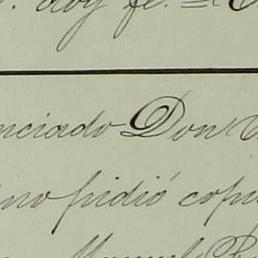 doy fé. =
nciado Don
no pidió copi
Manuel